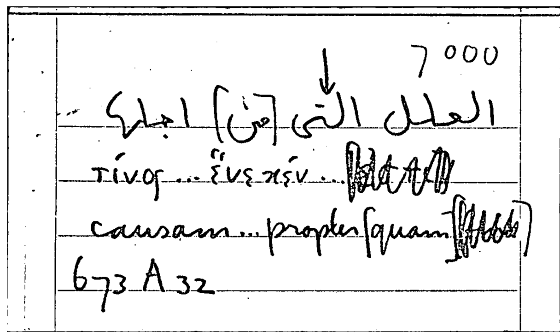 7000
العلل التى [من] اجلها
τίνος ... ἕνεκέν ...
causam ... propter [quam]
673 A 32